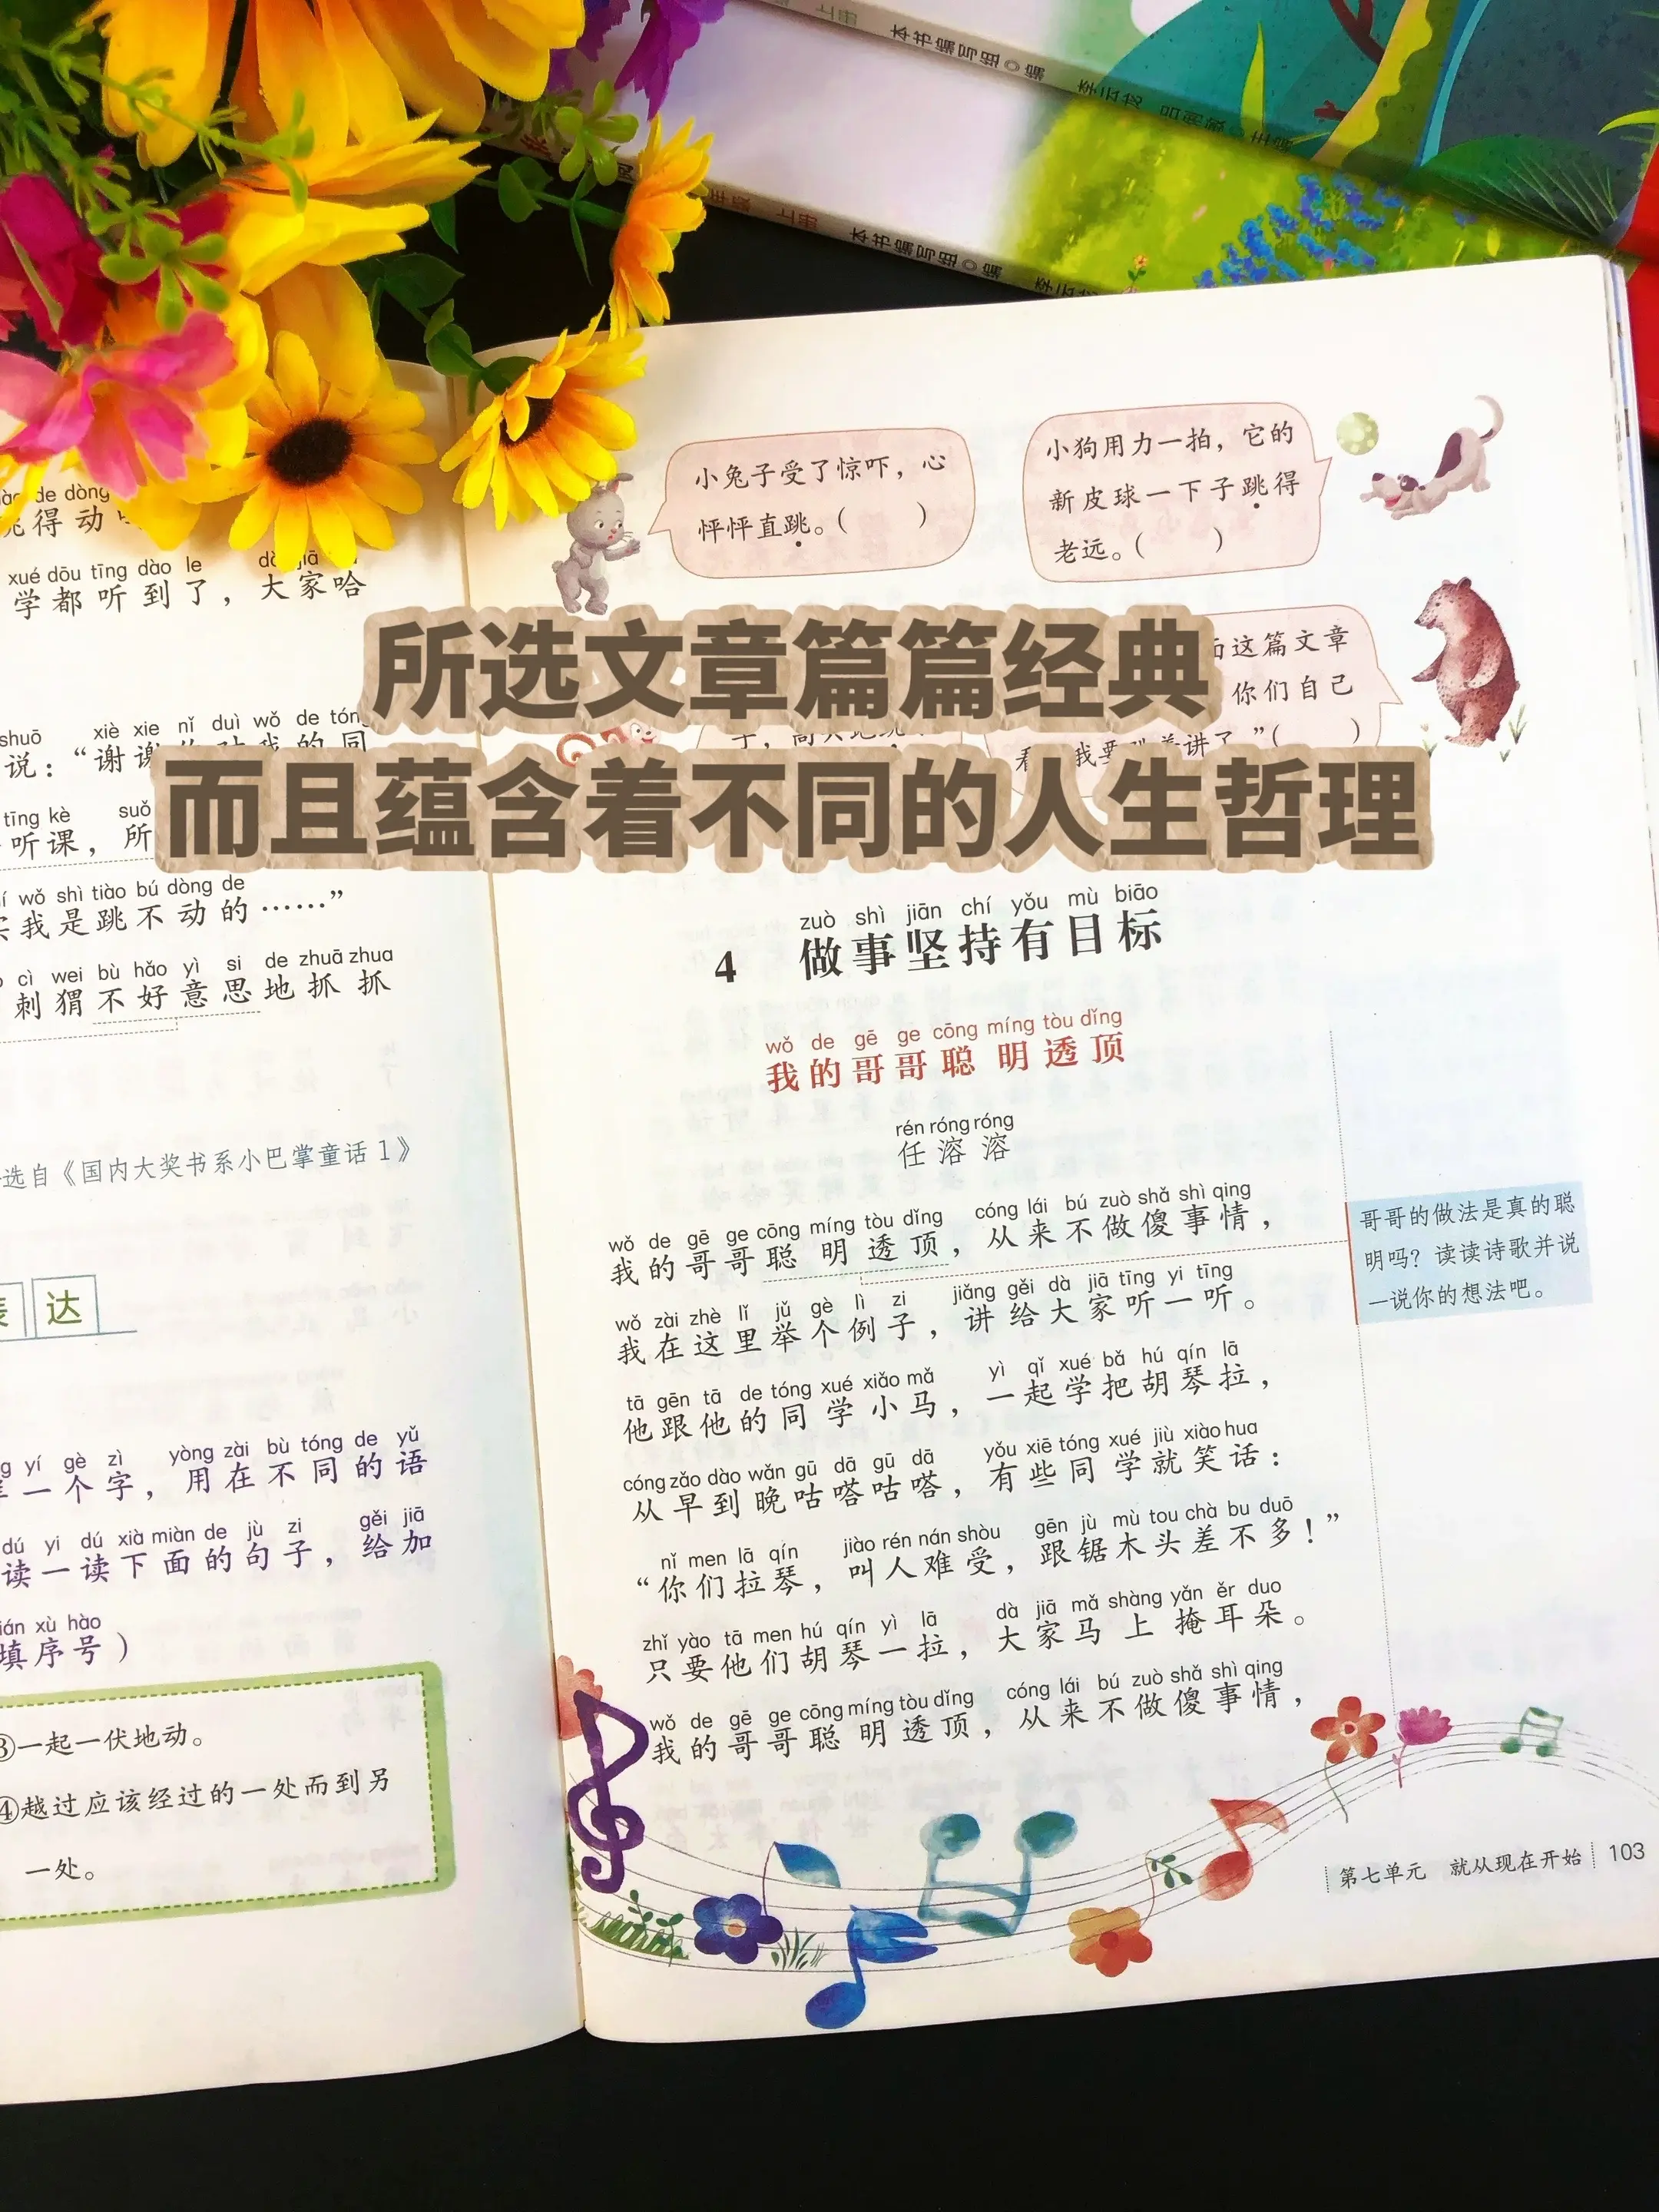 上册
本书编写组◎编
李云龙
主编
年级 上册
本书编写组◎编
李云龙
de dòng
得动
xué dōu tīng dào le
学都听到了，大家哈
shuō xiè xie nǐ duì wǒ de tóng
说：“谢谢你对我的同
tīng kè suǒ
听课，所
wǒ shì tiào bú dòng de
我是跳不动的……”
cì wei bù hǎo yì si de zhuā zhua
刺猬不好意思地抓抓
选自《国内大奖书系小巴掌童话1》
达
yí gè zì yòng zài bù tóng de yǔ
一个字，用在不同的语
dú yi dú xià miàn de jù zi gěi jiā
读一读下面的句子，给加
xù hào
填序号）
③一起一伏地动。
④越过应该经过的一处而到另
一处。
小兔子受了惊吓，心
怦怦直跳。（ ）
小狗用力一拍，它的
新皮球一下子跳得
老远。（ ）
这篇文章
你们自己
讲了。”（ ）
所选文章篇篇经典
而且蕴含着不同的人生哲理
zuò shì jiān chí yǒu mù biāo
4 做事坚持有目标
wǒ de gē ge cōng míng tòu dǐng
我的哥哥聪明透顶
rén róng róng
任溶溶
wǒ de gē ge cōng míng tòu dǐng cóng lái bú zuò shǎ shì qing
我的哥哥聪明透顶，从来不做傻事情，
wǒ zài zhè lǐ jǔ gè lì zi jiǎng gěi dà jiā tīng yi tīng
我在这里举个例子，讲给大家听一听。
tā gēn tā de tóng xué xiǎo mǎ yì qǐ xué bǎ hú qín lā
他跟他的同学小马，一起学把胡琴拉，
cóng zǎo dào wǎn gū dā gū dā yǒu xiē tóng xué jiù xiào hua
从早到晚咕嗒咕嗒，有些同学就笑话：
nǐ men lā qín jiào rén nán shòu gēn jù mù tou chà bu duō
“你们拉琴，叫人难受，跟锯木头差不多！”
zhǐ yào tā men hú qín yì lā dà jiā mǎ shàng yǎn ěr duo
只要他们胡琴一拉，大家马上掩耳朵。
wǒ de gē ge cōng míng tòu dǐng cóng lái bú zuò shǎ shì qing
我的哥哥聪明透顶，从来不做傻事情，
哥哥的做法是真的聪
明吗？读读诗歌并说
一说你的想法吧。
第七单元 就从现在开始 103